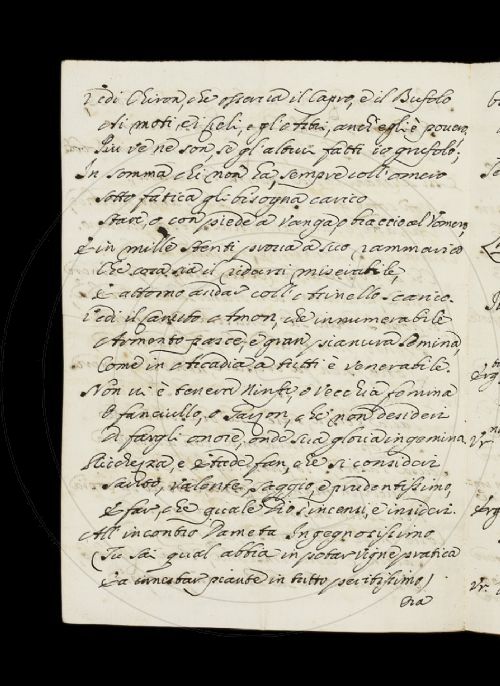 Vedi Chiron, che osserva il Capro, e il Bufolo
Ai moti, ai Cieli, e gl'Astri, anch'egli è povero,
Più ve ne son se gl'altrui fatti io grufolo;
In somma chi non ha, sempre coll'omero
Sotto fatica gli bisogna carico
Stare, o con piede a Vanga, o braccio al Vomero,
E in mille stenti prova a suo rammarico
Che cosa sia il ridursi miserabile,
E attorno andar coll'Asinello scarico.
Vedi il Amon, che innumerabile
Armento pasce, e gran pianura semina,
Come in Arcadia a tutti è venerabile.
Non vi è tenera Ninfa, o Vecchia femina
O fanciullo, o Garzon, che non desideri
Di fargli onore, onde sua gloria ingemina.
Ricchezza, e Etade fan, che si consideri
Savio, valente, saggio, e prudentissimo,
E far che quale Dio s'incensi, e
All'incontro Dameta Ingegnosissimo
(Tu sai qual abbia in potar vigne pratica
E a innestar piante in tutto peritissimo)